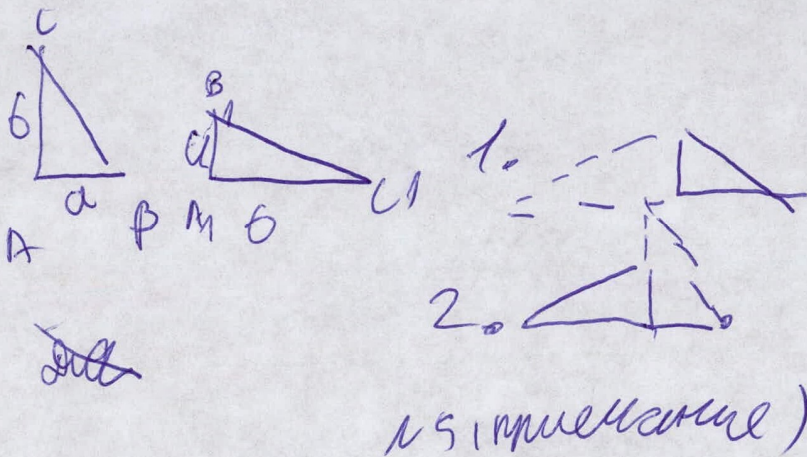 C
б
a
A
B
B
a
б
C1
1.
2.
№5 (примечание)